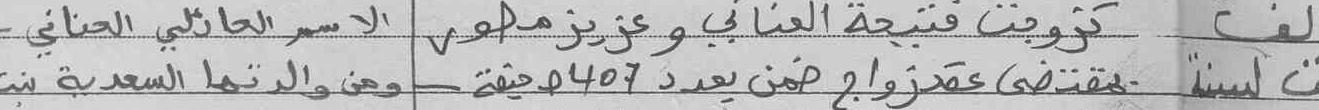 لف تزوجت فتيحة العنابي وعزيز مطور الاسم العائلي العنابي -
ت لسنة بمقتضى عقد زواج ضمن بعدد 407 صحيفة - ومن والدتها السعدية بنت